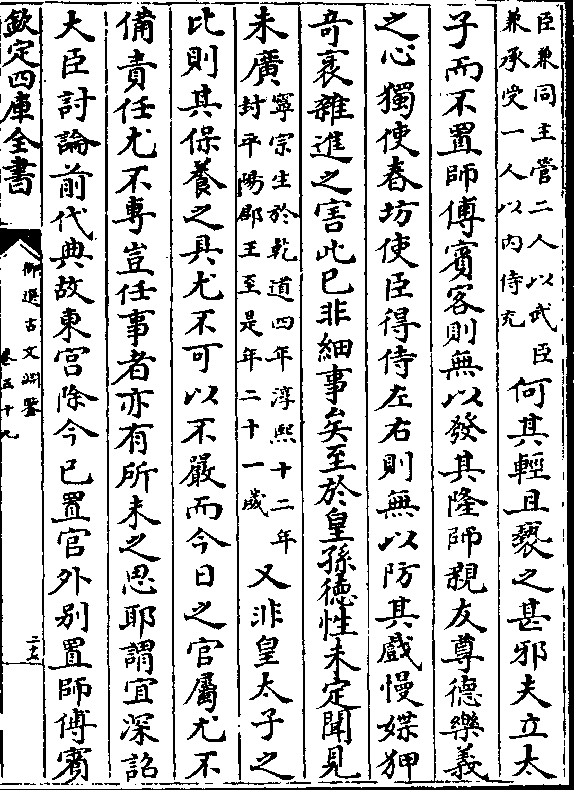 臣兼同主管二人以武臣
兼承受一人以内侍充
何其輕且䙝之甚邪夫立太
子而不置師傅賓客則無以發其隆師親友尊德樂義
之心獨使春坊使臣得侍左右則無以防其戲慢媟狎
奇衺雜進之害此已非細事矣至於皇孫德性未定聞見
未廣
寧宗生於乾道四年淳熙十二年
封平陽郡王至是年二十一歲
又非皇太子之
比則其保養之具尤不可以不嚴而今日之官屬尤不
備責任尤不專豈任事者亦有所未之思耶謂宜深詔
大臣討論前代典故東宮除今已置官外别置師傅賓
欽定四庫全書
御選古文淵鑒
卷五十九